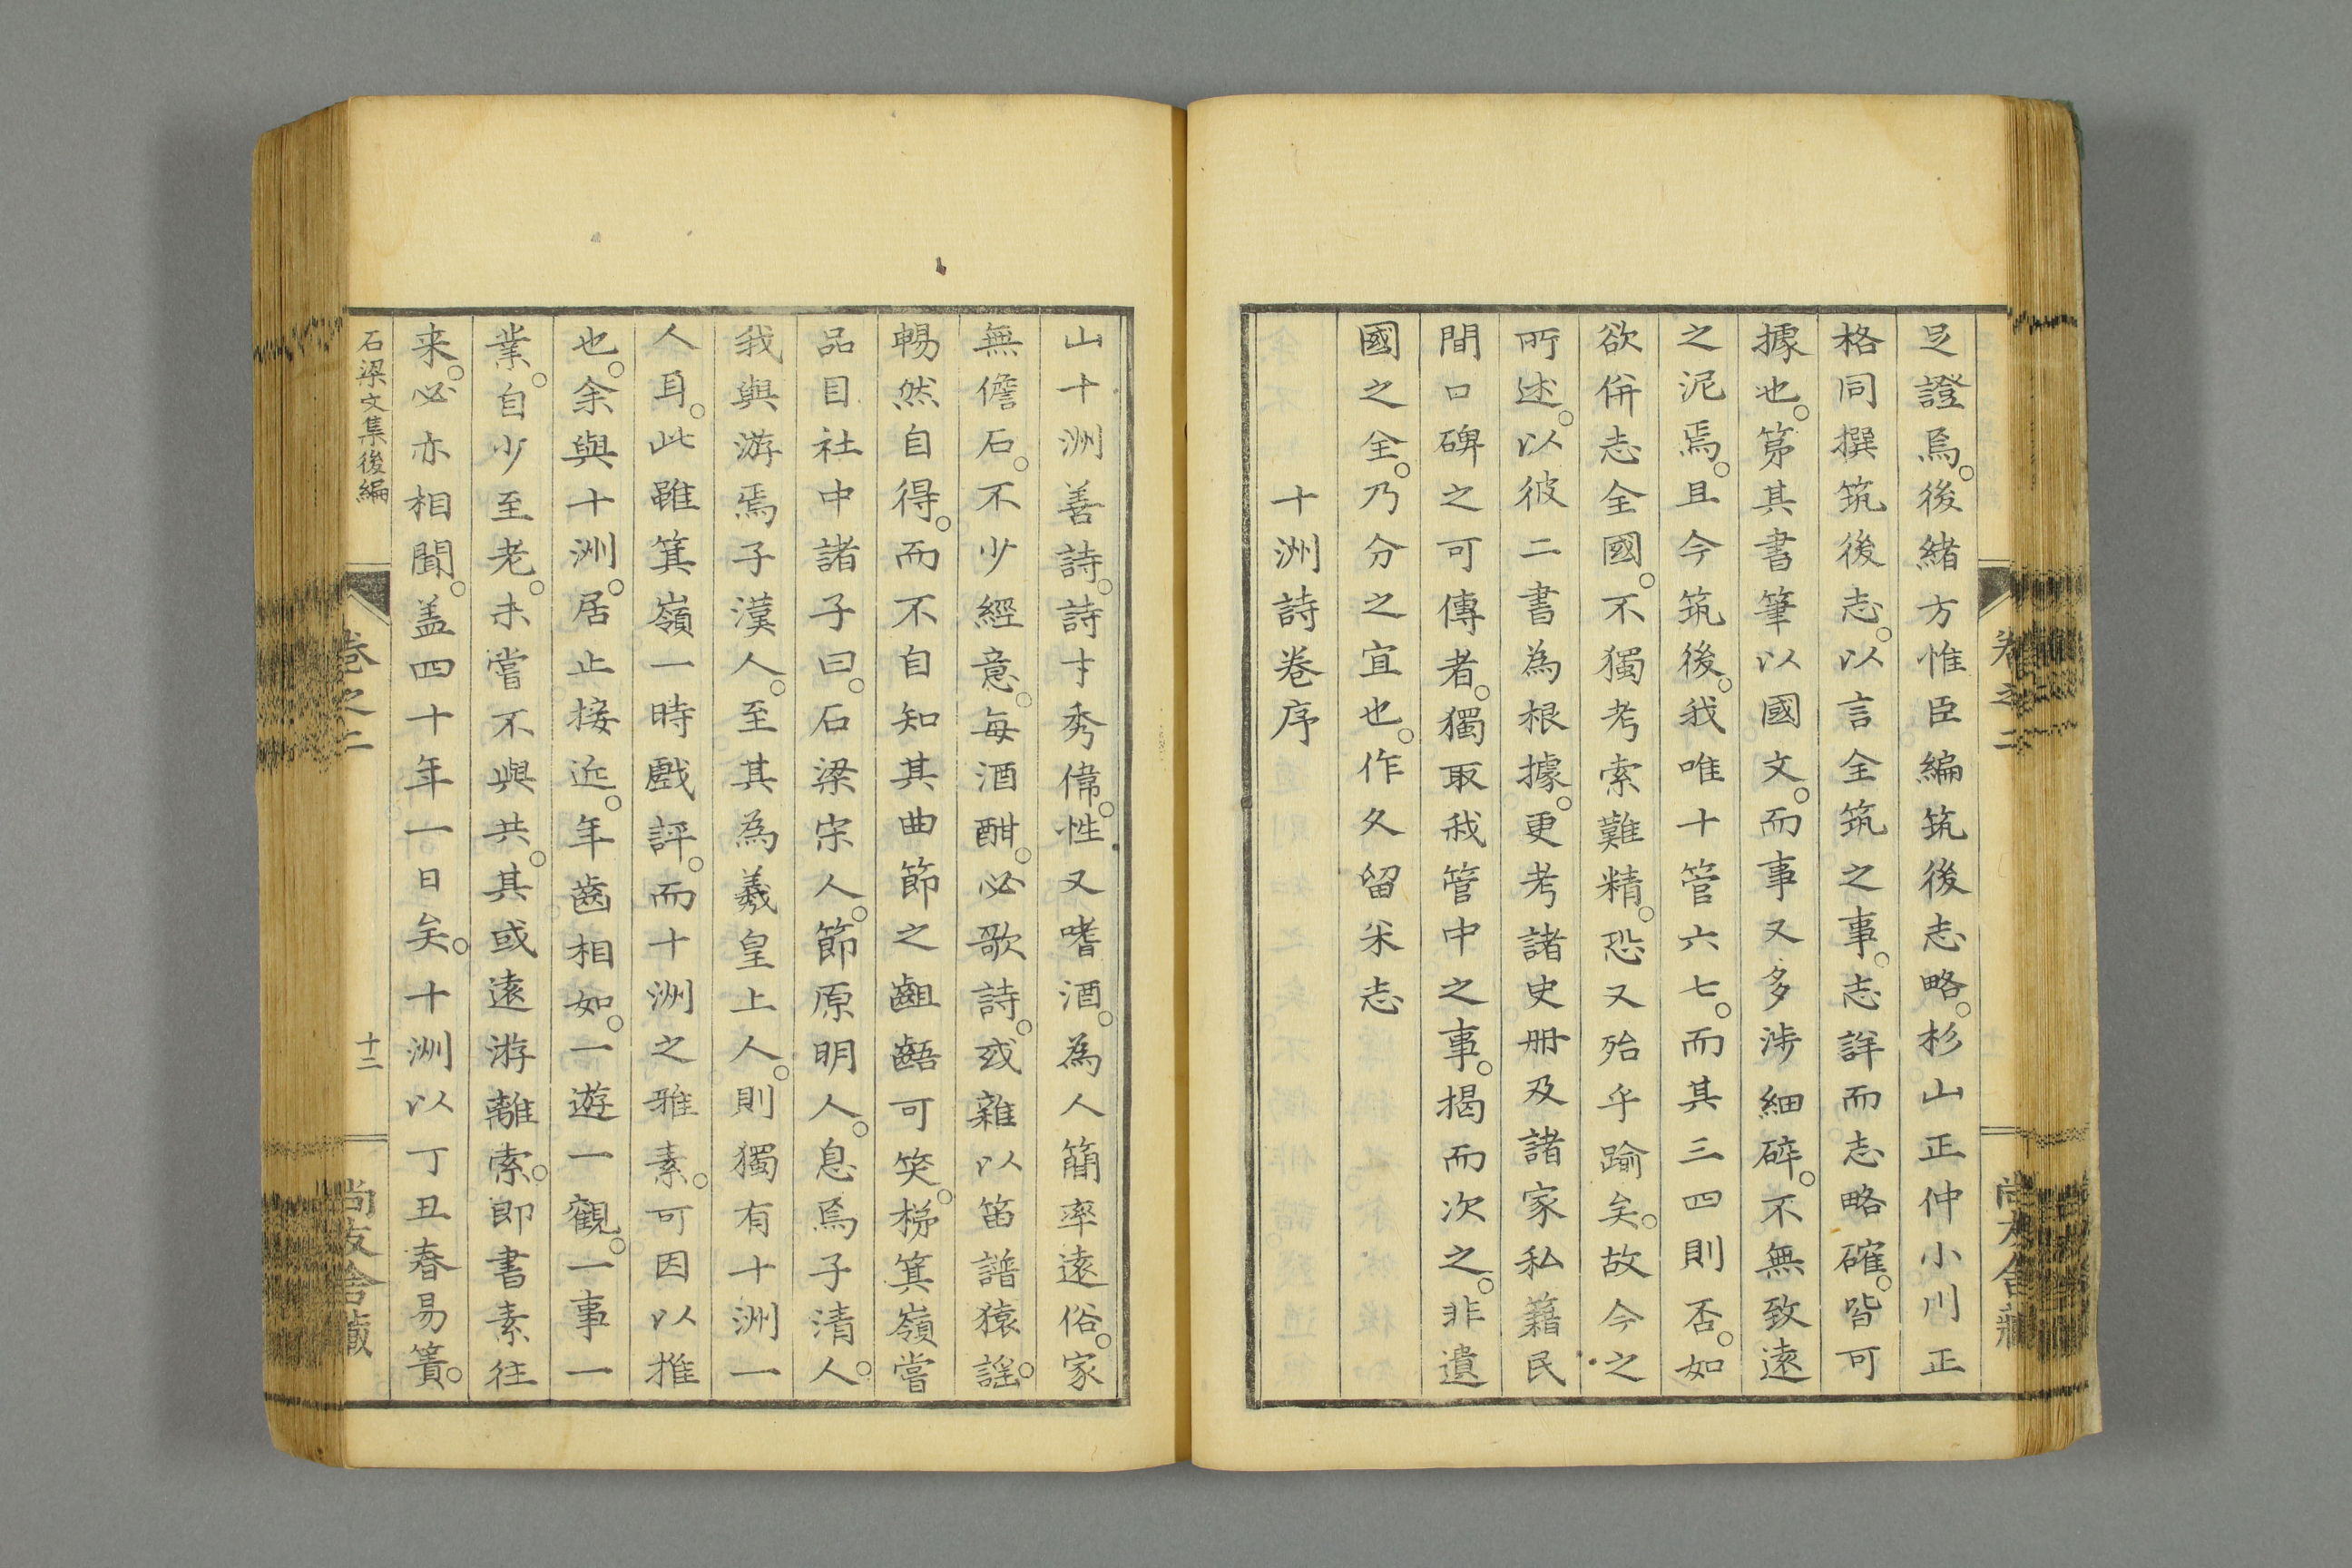 足證焉。後緒方惟臣編筑後志略。杉山正仲小川正
格同撰筑後志。以言全筑之事。志詳而志略確。皆可
據也。第其書筆以國文。而事又多涉細碎。不無致遠
之泥焉。且今筑後。我唯十管六七。而其三四則否。如
欲併志全國。不獨考索難精。恐又殆乎踰矣。故今之
所述。以彼二書為根據。更考諸史冊及諸家私藉民
間口碑之可傳者。獨取我管中之事。揭而次之。非遺
國之全。乃分之宜也。作久留米志
十洲詩卷序
卷之二
山十洲善詩。詩才秀偉。性又嗜酒。為人簡率遠俗。家
無儋石。不少經意。每酒酣。必歌詩。或雜以笛譜猿謠。
暢然自得。而不自知其曲節之齟齬可笑。梯箕嶺嘗
品目社中諸子曰。石梁宋人。節原明人。息焉子清人。
我與游焉子漢人。至其為羲皇上人。則獨有十洲一
人耳。此雖箕嶺一時戲評。而十洲之雅素。可因以推
也。余與十洲。居止接近。年齒相如。一遊一觀。一事一
業。自少至老。未嘗不與共。其或遠游離索。即書素往
来。必亦相聞。盖四十年一日矣。十洲以丁丑春易簀。
石梁文集後編
卷之二
十二
尚友舍藏